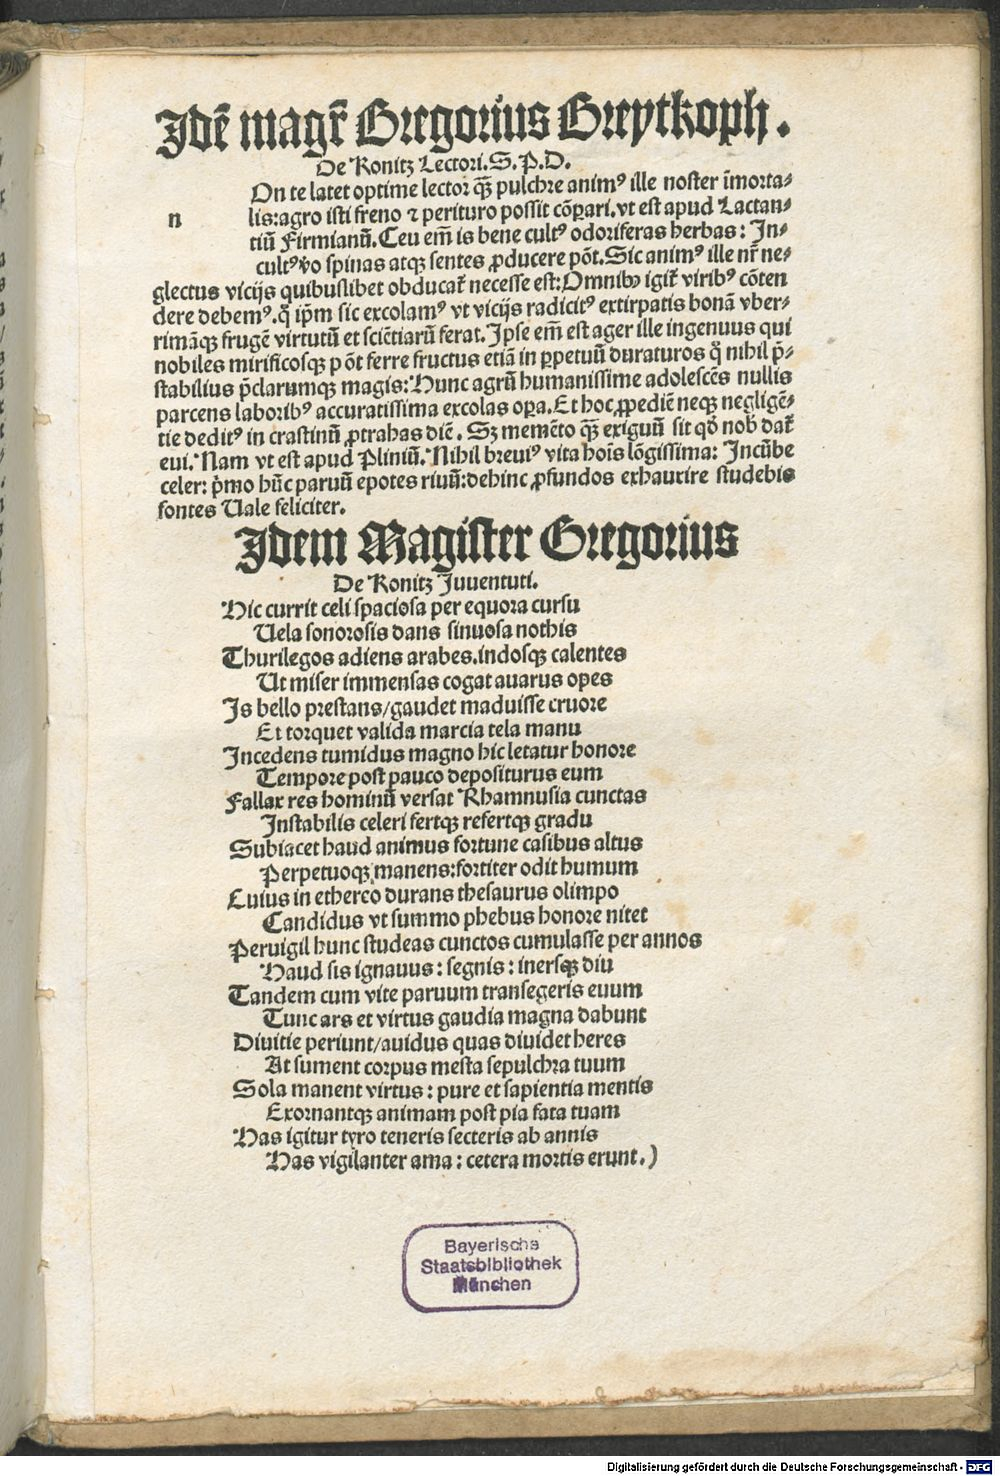 Idē magr̄ Gregorius Breytkoph.
De Konitz Lectori. S. P. D.
On te latet optime lector q̄ꝫ pulchre animꝰ ille noster īmorta-
n lis: agro isti freno ⁊ perituro possit cōpari. vt est apud Lactan-
tiū Firmianū. Ceu em̄ is bene cultꝰ odoriferas herbas: In-
cultꝰ v̄o spinas atqꝫ sentes ꝓducere pōt. Sic animꝰ ille nr̄ ne-
glectus vicijs quibuslibet obducat̄ necesse est: Omnibꝰ igit̄ viribꝰ cōten
dere debemꝰ. qͦ ip̄m sic excolamꝰ vt vicijs radicitꝰ extirpatis bonā vber-
rimāqꝫ frugē virtutū et sciētiarū ferat. Ipse em̄ est ager ille ingenuus qui
nobiles mirificosqꝫ pōt ferre fructus etiā in ꝑpetuū duraturos qͦ nihil p̄-
stabilius p̄clarumqꝫ magis: Hunc agrū humanissime adolescēs nullis
parcens laboribꝰ accuratissima excolas oꝑa. Et hoc ꝓpediē neqꝫ negligē-
tie deditꝰ in crastinū ꝓtrahas diē. Sꝫ memēto q̄ꝫ exiguū sit qͦd nob̄ dat̄
eui. Nam vt est apud Pliniū. Nihil breuiꝰ vita hoīs lōgissima: Incūbe
celer: p̄mo hūc paruū epotes riuū: dehinc ꝓfundos exhaurire studebis
fontes Uale feliciter.
Idem Magister Gregorius
De Konitz Juuentuti.
Hic currit celi spaciosa per equora cursu
Uela sonorosis dans sinuosa nothis
Thurilegos adiens arabes. indosqꝫ calentes
Ut miser immensas cogat auarus opes
Is bello prestans/ gaudet maduisse cruore
Et torquet valida marcia tela manu
Incedens tumidus magno hic letatur honore
Tempore post pauco depositurus eum
Fallax res hominū versat Rhamnusia cunctas
Instabilis celeri fertqꝫ refertqꝫ gradu
Subiacet haud animus fortune casibus altus
Perpetuoqꝫ manens: fortiter odit humum
Cuius in ethereo durans thesaurus olimpo
Candidus vt summo phebus honore nitet
Peruigil hunc studeas cunctos cumulasse per annos
Haud sis ignauus: segnis: inersqꝫ diu
Tandem cum vite paruum transegeris euum
Tunc ars et virtus gaudia magna dabunt
Diuitie periunt/ auidus quas diuidet heres
At sument corpus mesta sepulchra tuum
Sola manent virtus: pure et sapientia mentis
Exornantqꝫ animam post pia fata tuam
Has igitur tyro teneris secteris ab annis
Has vigilanter ama: cetera mortis erunt.)
Bayerische
Staatsbibliothek
München
Digitalisierung gefördert durch die Deutsche Forschungsgemeinschaft - DFG